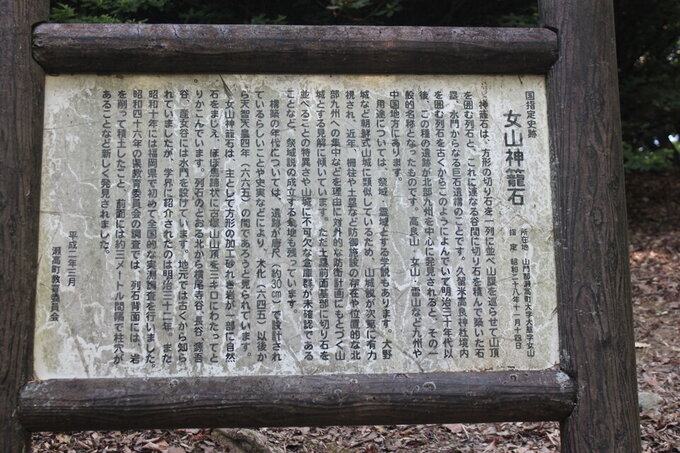 国指定史跡
女山神籠石
所在地 山門郡瀬高町大字大草字女山
指定 昭和二十八年十一月十四日
神籠石は、方形の切り石を一列に並べ山腹を巡らせて山頂
を囲む列石と、これに連なる谷間に切り石を積んで築いた石
塁、水門からなる巨石遺構のことです。久留米高良神社境内
を囲む列石を古くからこのようによんでいて明治三十年代以
後、この種の遺跡が北部九州を中心に発見されると、その一
般的名称となったものです。高良山・女山・雷山など九州や
中国地方にあります。
用途については、祭域・霊域とする学説もあります。大野
城など朝鮮式山城に類似しているため、山城説が次第に有力
視され、近年、柵柱や土塁など防御施設の存在や位置的な北
部九州への集中などを理由に対外的な防衛計画にもとづく山
城とする見解に傾いています。ただ土塁前面基部に切り石を
並べることの特異さや山城に不可欠な倉庫群が未確認である
ことなど、祭域説の成立する余地も残っています。
構築の年代については、遺跡が唐尺（約30㎝）で設計され
ているらしいことや史実などにより、大化（六四五）以後か
ら天智天皇四年（六六五）の間であろうと見られています。
女山神籠石は、主として方形の加工われき岩が一部に自然
石をまじえ、ほぼ馬蹄状に古塚山山頂を三キロにわたってと
りかこんでいます。列石のとおる北から横尾寺谷、長谷、源吾
谷、産女谷には水門を設けています。地元では古くから知ら
れていましたが、学界に紹介されたのは明治三十二年、また
昭和十年には福岡県で初めて全国的な実測調査を行いました。
昭和四十六年の県教育委員会の調査では、列石背面には、岩
を削って積土したこと、前面には約三メートル間隔で柱穴が
あることなど新しく発見されました。
平成二年三月
瀬高町教育委員会